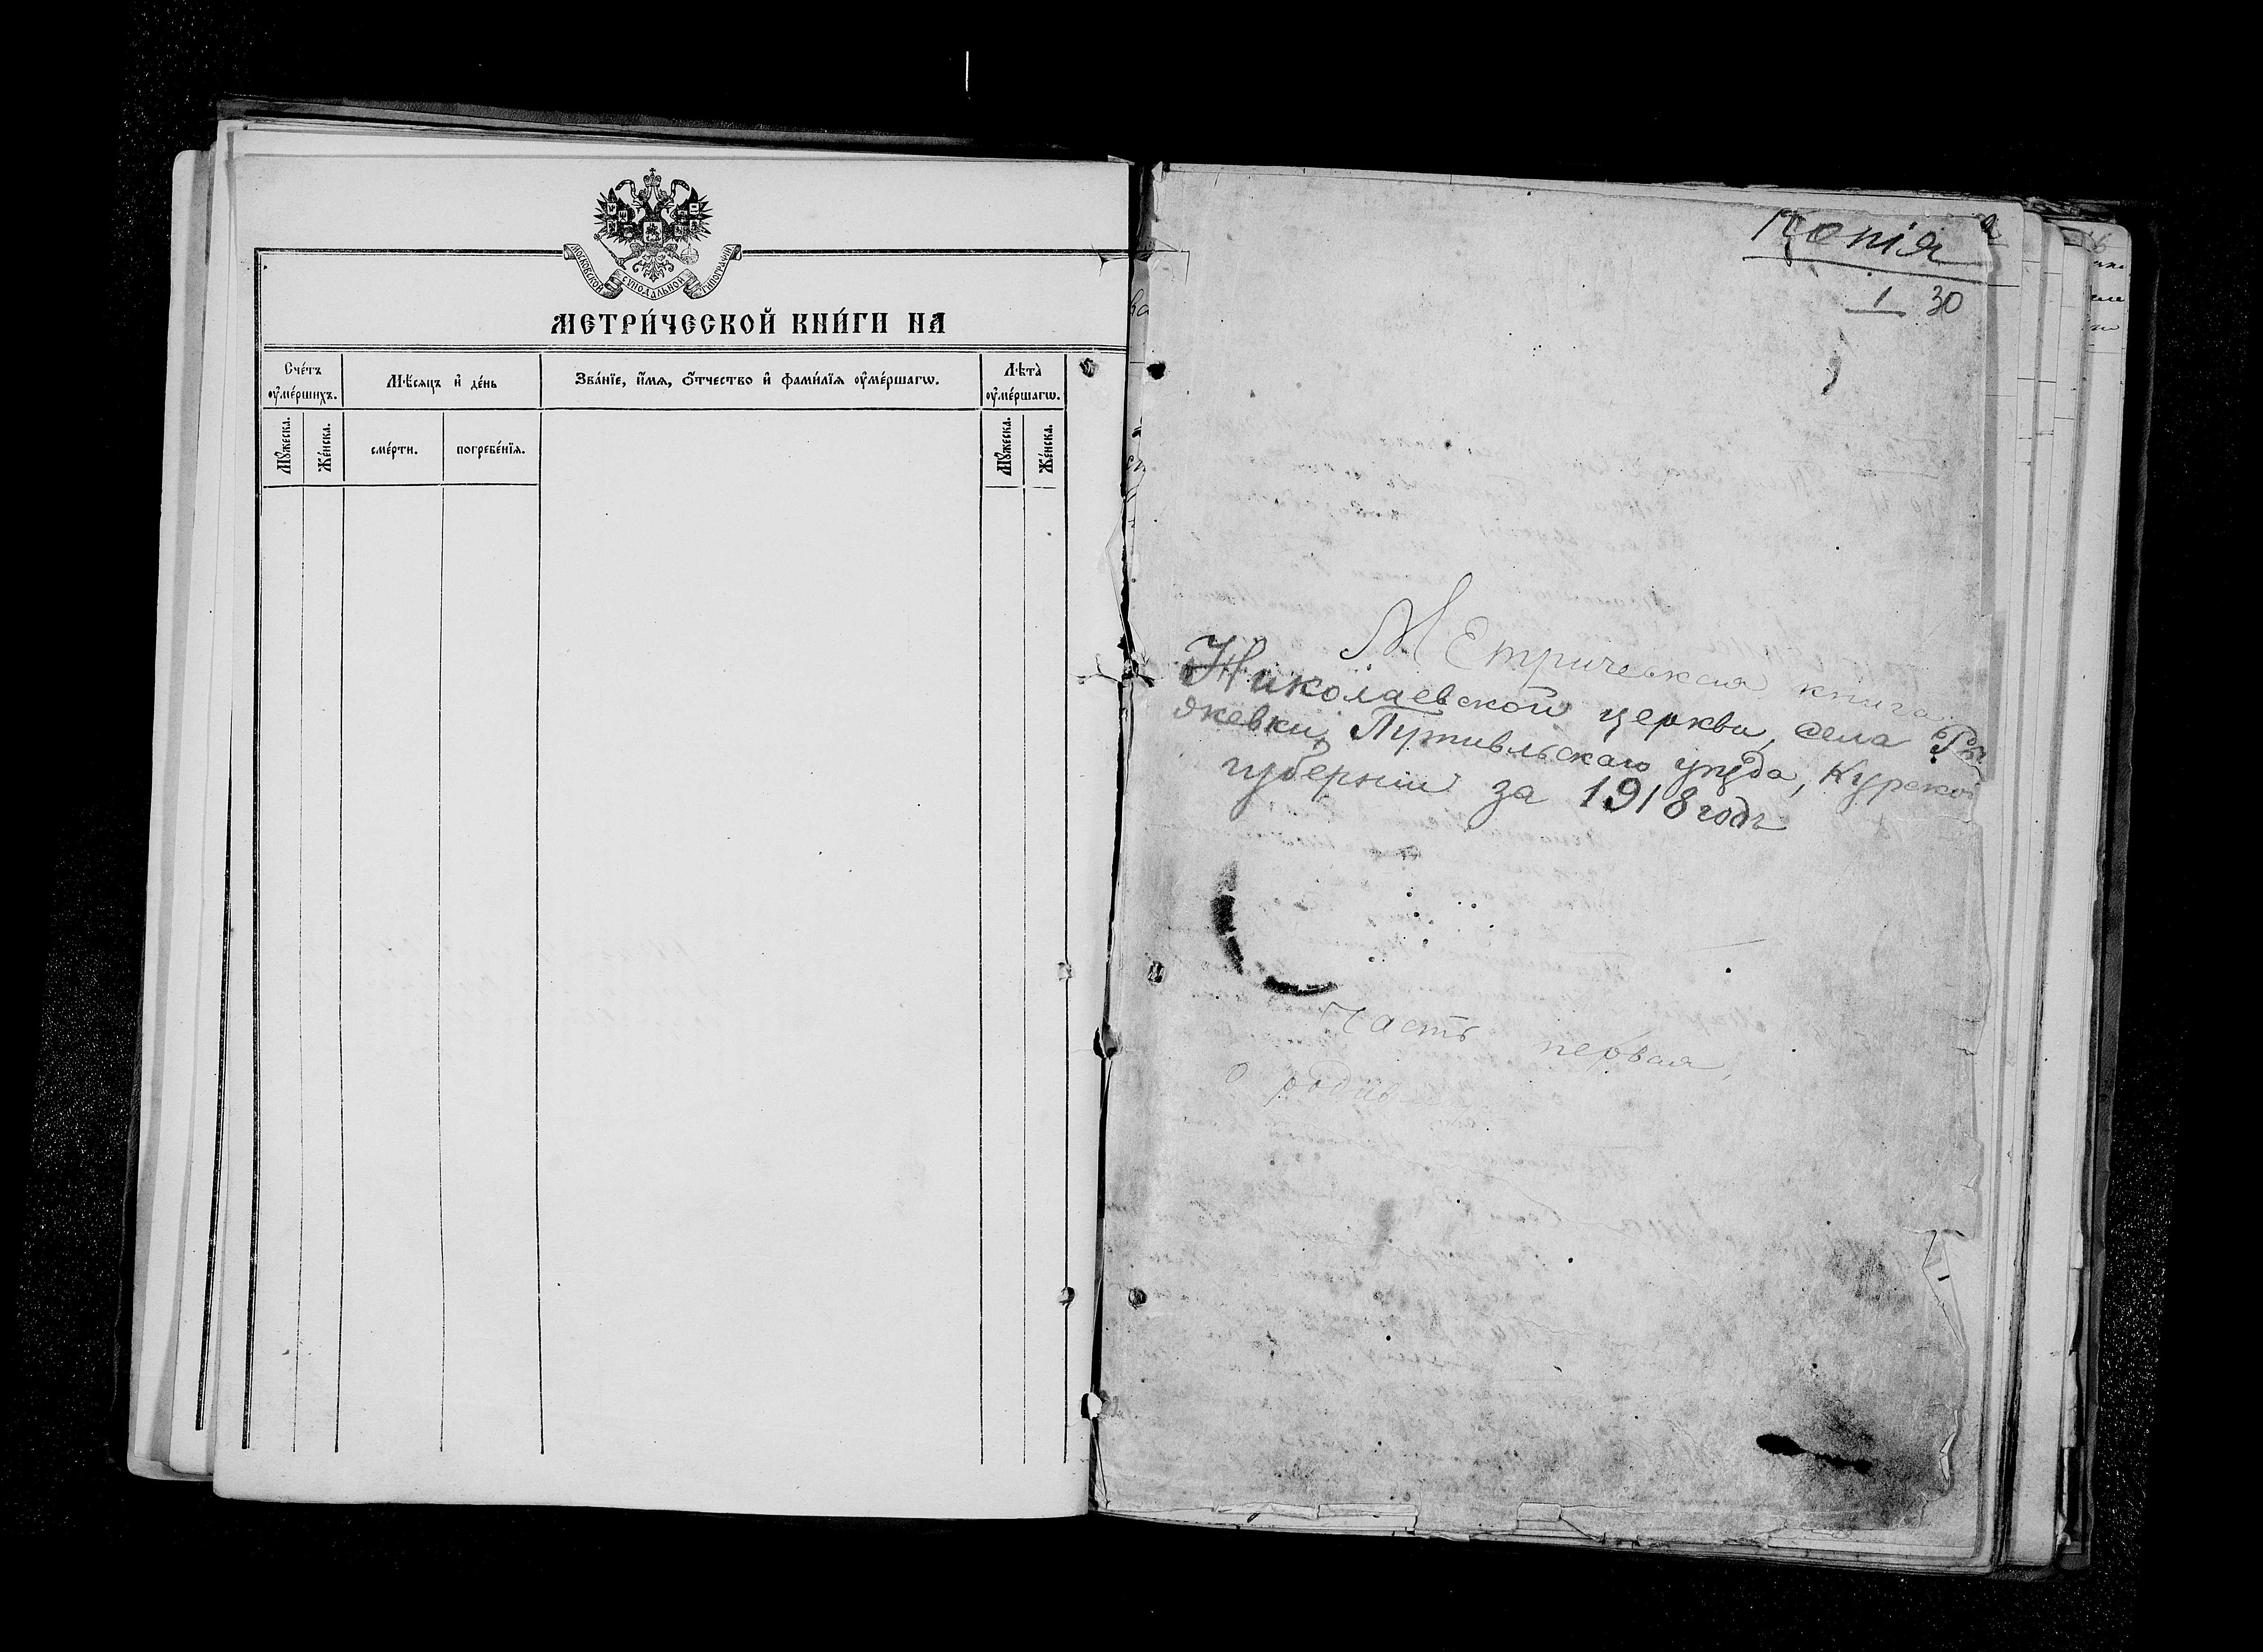 МОСКОВСКОЙ СѴНОДАЛЬНОЙ ТИПОГРАФІИ
МЕТРИ́ЧЕСКОЙ КНИ́ГИ НА
Сче́тъ ᲂу҆ме́ршихъ.
Мѣ́сяцъ и҆ де́нь
Зва́нїе, и҆́мѧ, ѻ҆́тчество и҆ фами́лїѧ ᲂу҆ме́ршагѡ.
Лѣ́та ᲂу҆ме́ршагѡ.
Мꙋ́жеска.
Же́нска.
сме́рти.
погребе́нїѧ.
Мꙋ́жеска.
Же́нска.
Копія
1 30
Метрическая книга
Николаевской церкви, села
Путивльскаго уѣзда, Курской
губерніи за 1918 годъ
Часть первая,
о родив